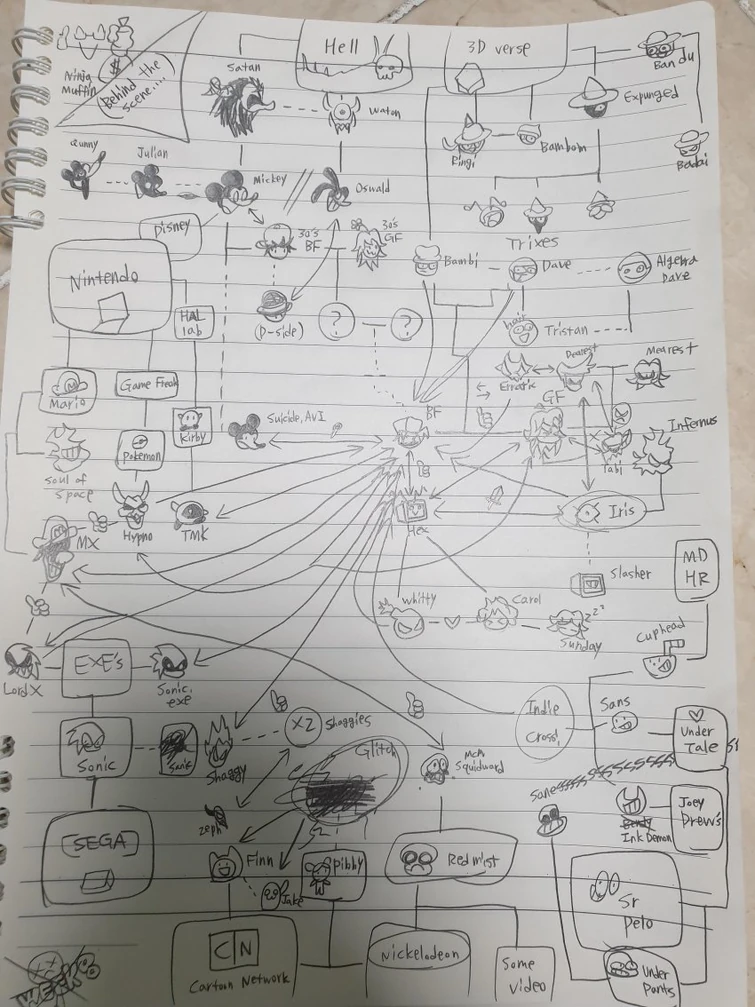 Hell
3D verse
Ninja
Muffin
$
Behind the
scene....
Satan
Waton
Bandu
Expunged
Ringi
Bambom
Badai
Qunny
Julian
Mickey
Oswald
Disney
30's
BF
30's
GF
Trixes
Nintendo
HAL
lab
(D-side)
?
?
Bambi
Dave
Algebra
Dave
hair
Tristan
Mario
Game Freak
Kirby
Suicide, AVI
BF
Erratic
Dearest
Mearest
GF
Infernus
Soul of
space
Pokemon
Tabi
MX
Hypno
TMK
Hex
Iris
Slasher
MD
HR
Whitty
Carol
Sunday
zzz
Cuphead
Lord X
EXE's
Sonic.
exe
Indie
Cross
Sans
Under
Tale
Sonic
Sanic
Shaggy
XZ
Shaggies
Glitch
MCM
Squidward
Sans
Bendy
Ink Demon
Joey
Drew's
[SEGA]
Zeph
Finn
Jake
Pibby
Redmist
Sr
Pelo
CN
Cartoon Network
Nickelodeon
Some
video
Under
Pants
WEEK 8